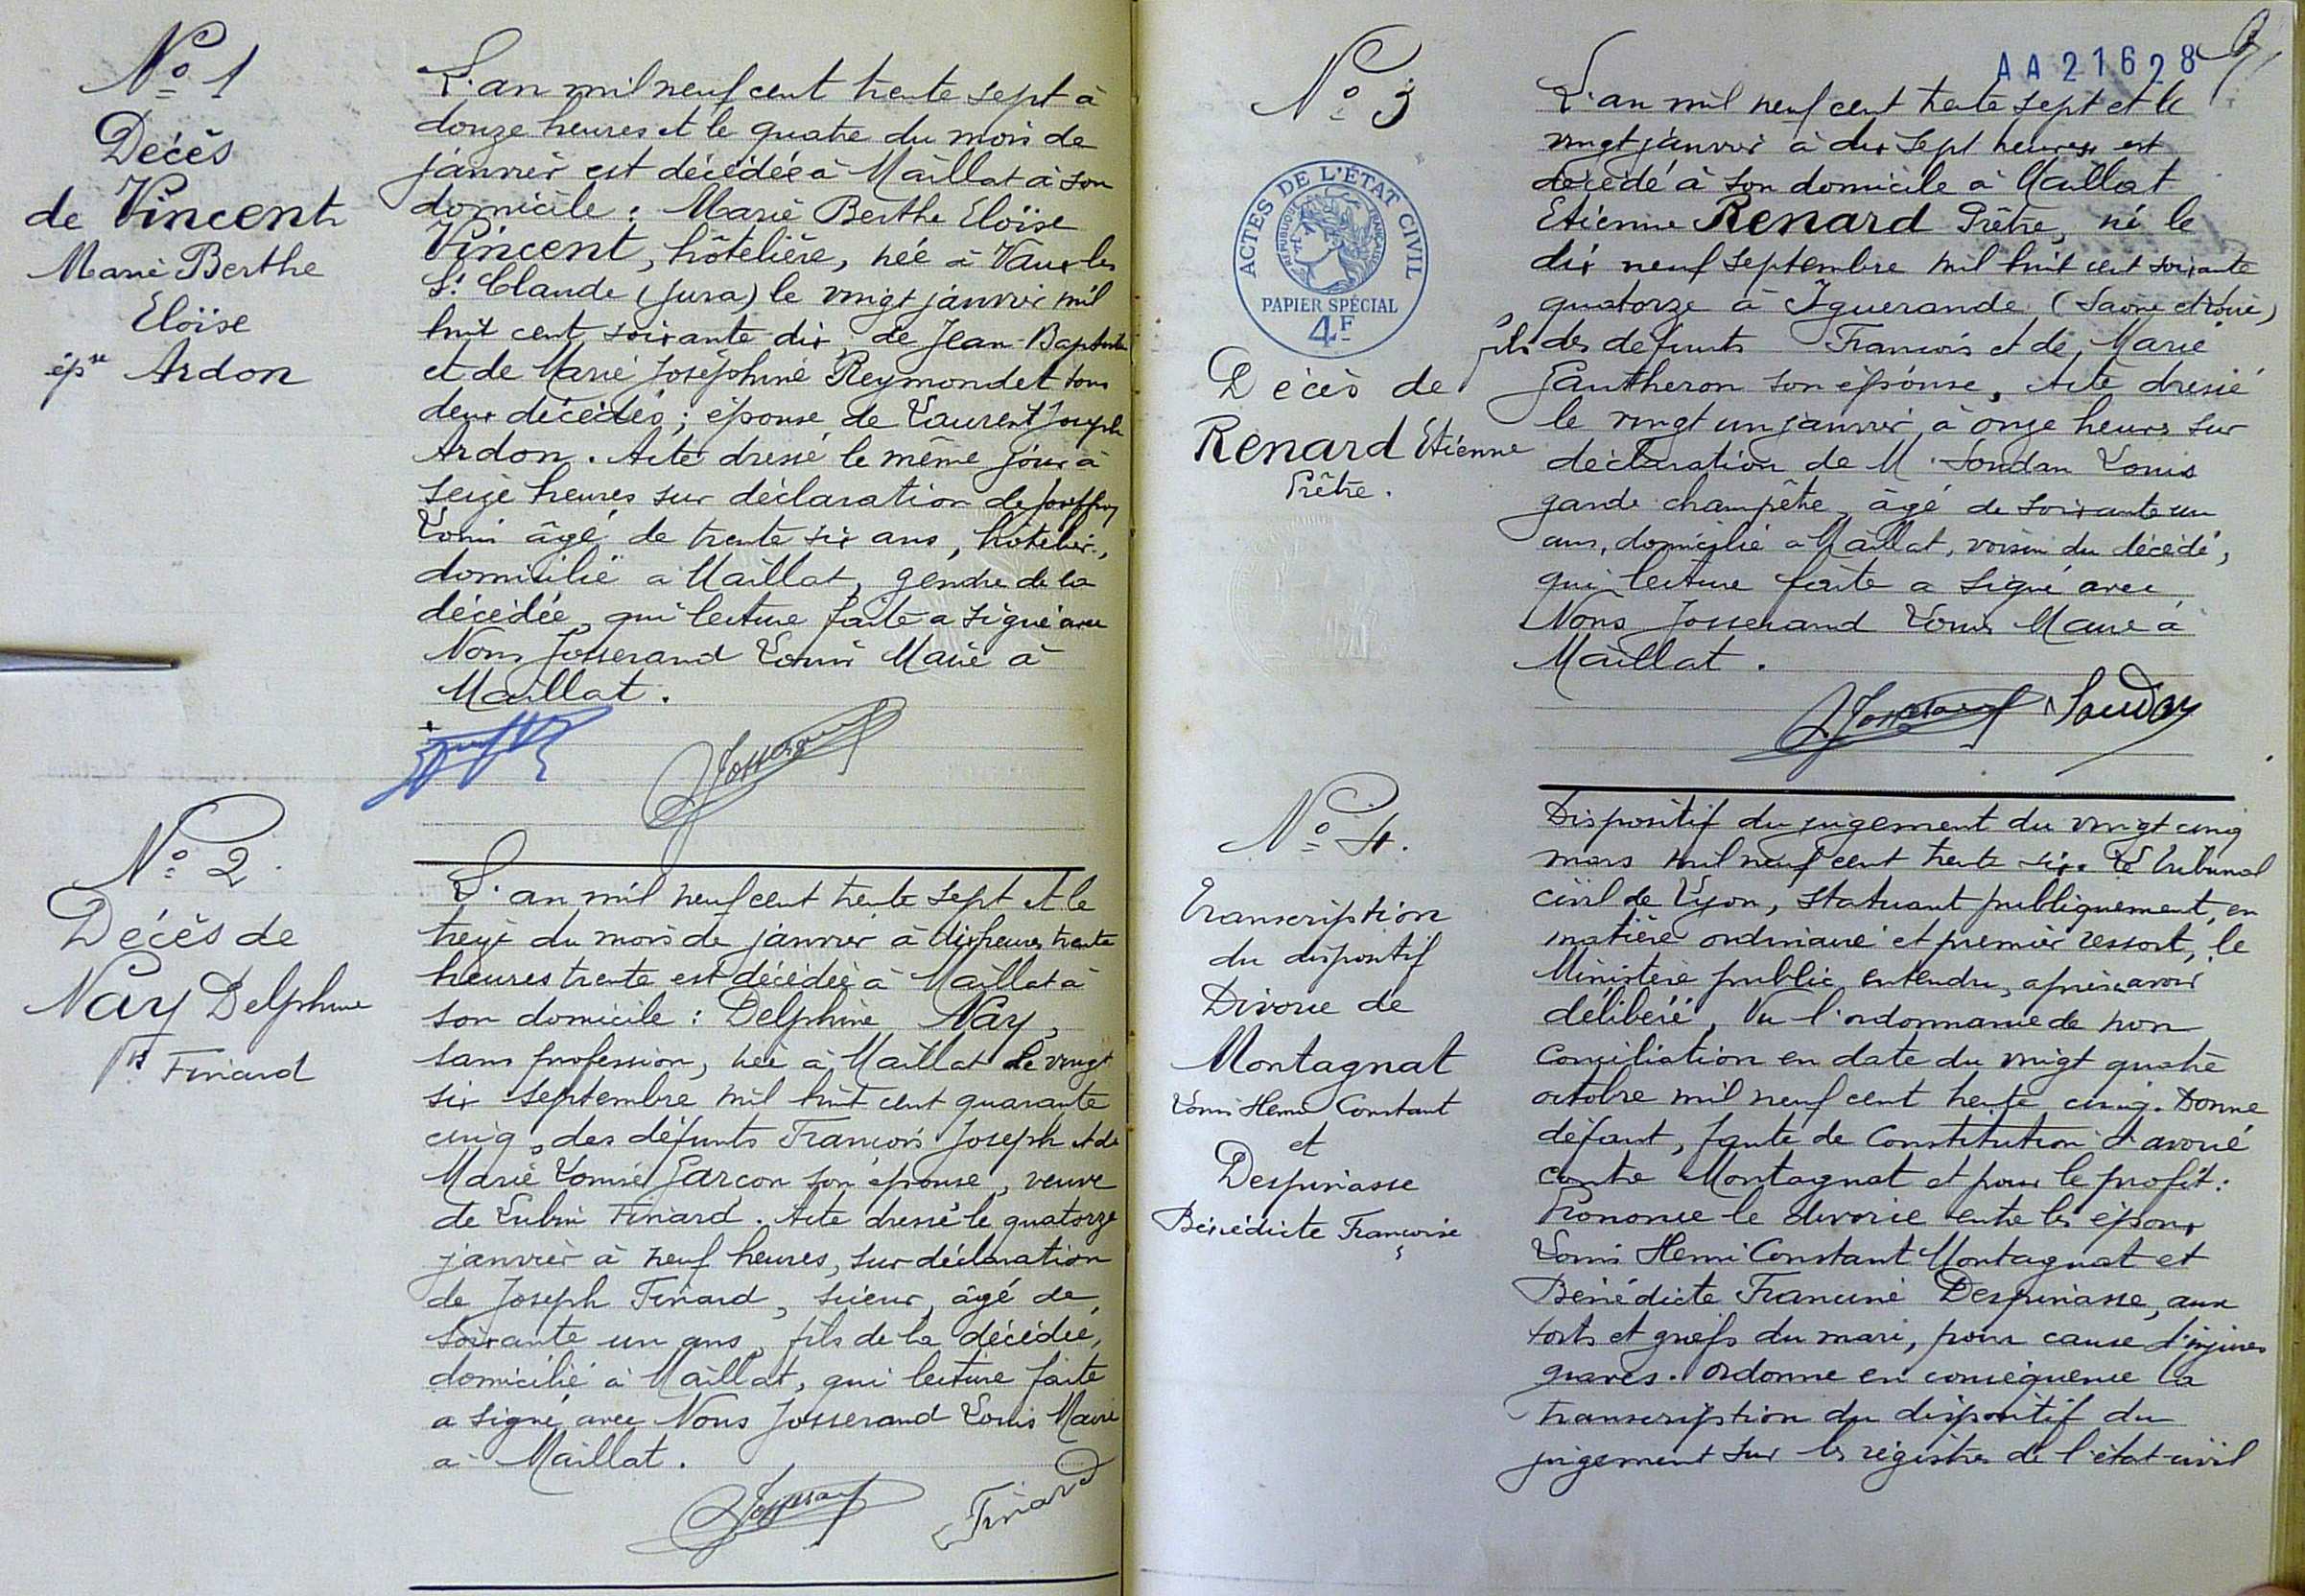 N° 1
Décès
de Vincent
Marie Berthe
Eloïse
épse Ardon
L'an mil neuf cent trente sept à
douze heures et le quatre du mois de
janvier est décédée à Maillat à son
domicile : Marie Berthe Eloïse
Vincent, hôtelière, née à Vaux les
St Claude (Jura) le vingt janvier mil
huit cent soixante dix de Jean-Baptiste
et de Marie Joséphine Reymondet tous
deux décédés ; épouse de Laurent Joseph
Ardon. Acte dressé le même jour à
seize heures sur déclaration de
Louis âgé de trente six ans, hôtelier,
domicilié à Maillat, gendre de la
décédée, qui lecture faite a signé avec
Nous Josserand Louis Maire à
Maillat.
Josserand
N° 2.
Décès de
Nay Delphine
Vve Finard
L'an mil neuf cent trente sept et le
treize du mois de janvier à dix heures trente
heures trente est décédée à Maillat à
son domicile : Delphine Nay,
sans profession, née à Maillat le vingt
six septembre mil huit cent quarante
cinq, des défunts François Joseph et de
Marie Louise Garçon son épouse, veuve
de Lubin Finard. Acte dressé le quatorze
janvier à neuf heures, sur déclaration
de Joseph Finard, scieur, âgé de
soixante un ans, fils de la décédée,
domicilié à Maillat, qui lecture faite
a signé avec Nous Josserand Louis Maire
à Maillat.
Josserand Finard
AA21628
N° 3
ACTES DE L'ÉTAT CIVIL
RÉPUBLIQUE FRANÇAISE
PAPIER SPÉCIAL
4F
Décès de
Renard Etienne
Prêtre.
L'an mil neuf cent trente sept et le
vingt janvier à dix sept heures est
décédé à son domicile à Maillat
Etienne Renard Prêtre, né le
dix neuf septembre mil huit cent soixante
quatorze à Iguerande (Saône et Loire)
fils des défunts François et de Marie
Gautheron son épouse. Acte dressé
le vingt un janvier à onze heures sur
déclaration de M. Soudan Louis
garde champêtre, âgé de soixante un
ans, domicilié à Maillat, voisin du décédé,
qui lecture faite a signé avec
Nous Josserand Louis Maire à
Maillat.
Josserand Soudan
N° 4.
Transcription
du dispositif
Divorce de
Montagnat
Louis Henri Constant
et
Despinasse
Bénédicte Françoise
Dispositif du jugement du vingt cinq
mars mil neuf cent trente six. Le tribunal
civil de Lyon, statuant publiquement, en
matière ordinaire et premier ressort, le
Ministère public entendu, après avoir
délibéré, Vu l'ordonnance de non
conciliation en date du vingt quatre
octobre mil neuf cent trente cinq. Donne
défaut, faute de Constitution d'avoué
contre Montagnat et pour le profit :
Prononce le divorce entre les époux
Louis Henri Constant Montagnat et
Bénédicte Francine Despinasse, aux
torts et griefs du mari, pour cause d'injures
graves. Ordonne en conséquence la
transcription du dispositif du
jugement sur les registres de l'état-civil